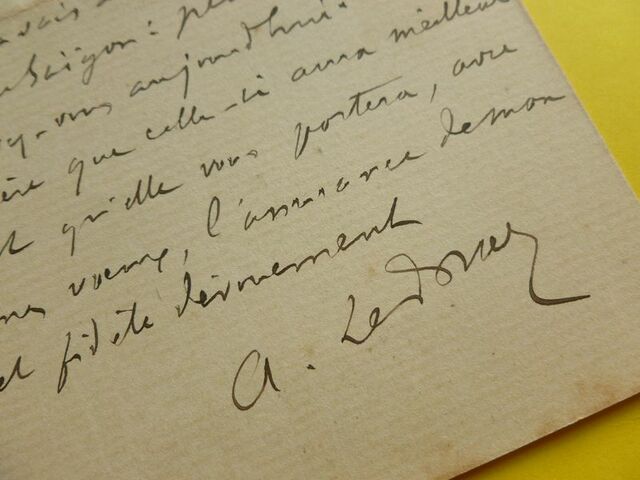 avais
Saïgon :
-vous aujourd'hui.
que celle-ci aura meilleur
qu'elle vous portera, avec
mes voeux, l'assurance de mon
et fidèle dévouement
A. Ledoux